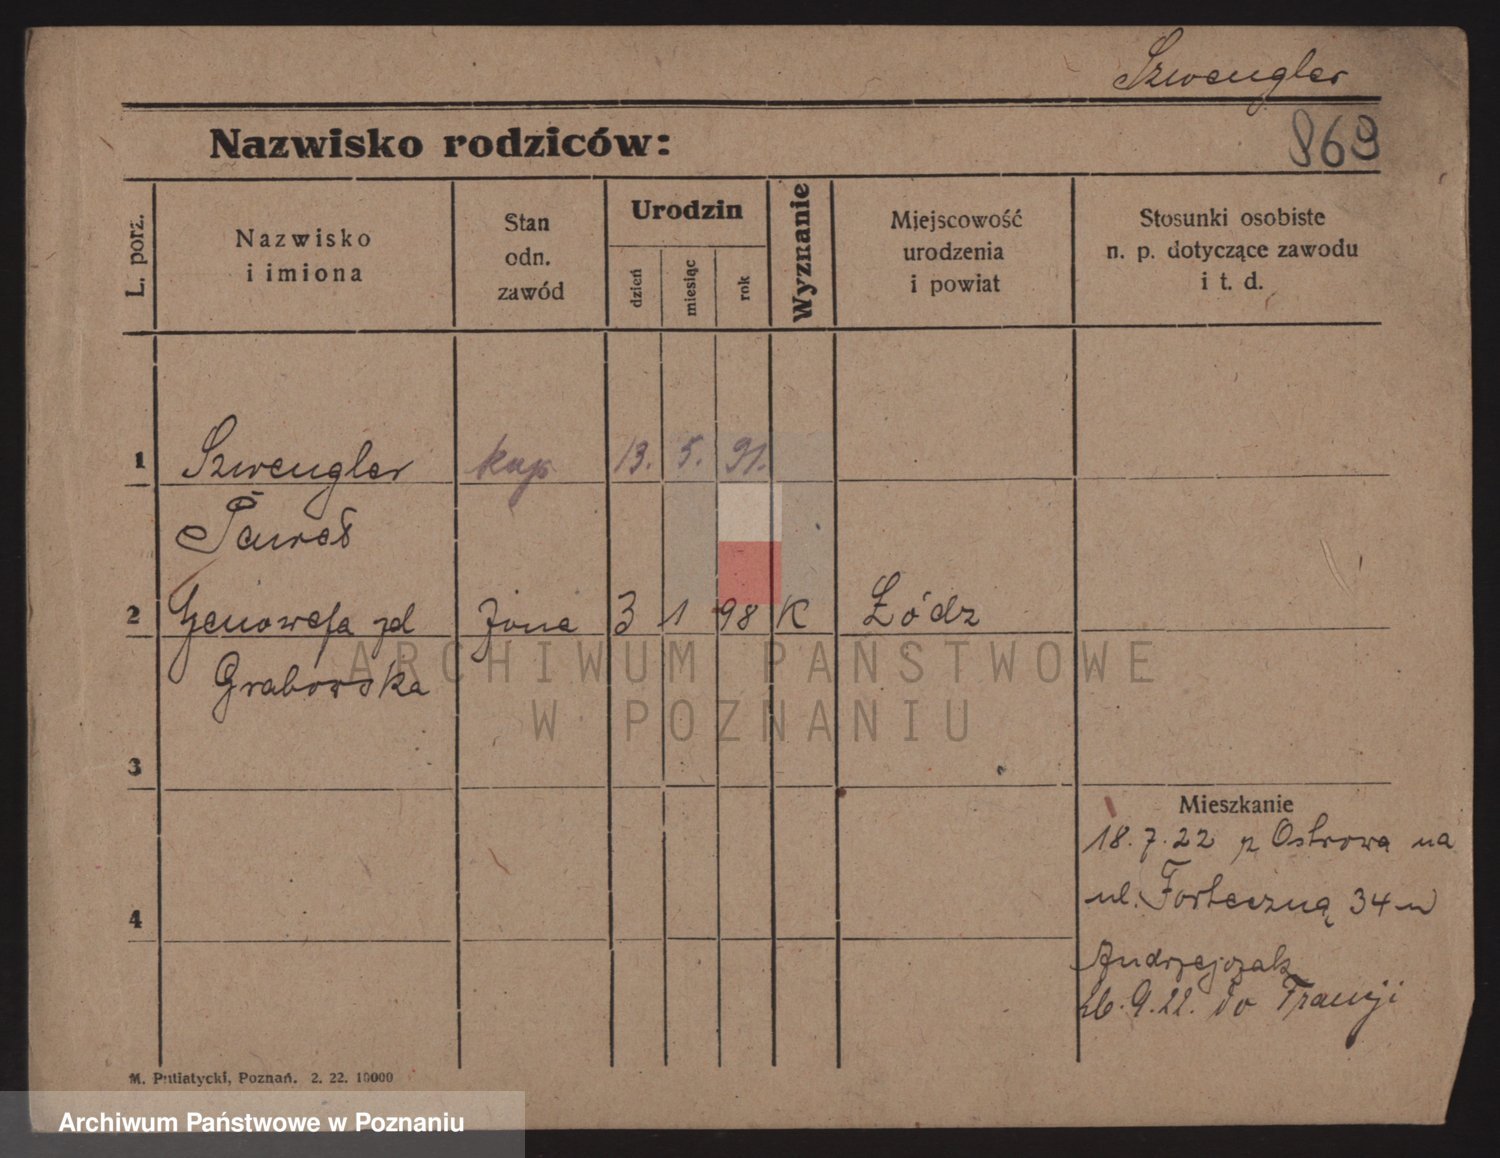 Szwengler
Nazwisko rodziców:
868
L. porz.
Nazwisko
i imiona
Stan
odn.
zawód
Urodzin
dzień
miesiąc
rok
Wyznanie
Miejscowość
urodzenia
i powiat
Stosunki osobiste
n. p. dotyczące zawodu
i t. d.
1 Szwengler kup. 13. 5. 91.
Paweł
2 Genowefa zd żona 3 1 98 K Łódz
Grabowska
ARCHIWUM PAŃSTWOWE
W POZNANIU
3
Mieszkanie
18.7.22 z Ostrowa na
ul. Forteczną 34 u
4
Andrzejczak
26.9.22. do Francji
M. Putiatycki, Poznań. 2. 22. 10000
Archiwum Państwowe w Poznaniu